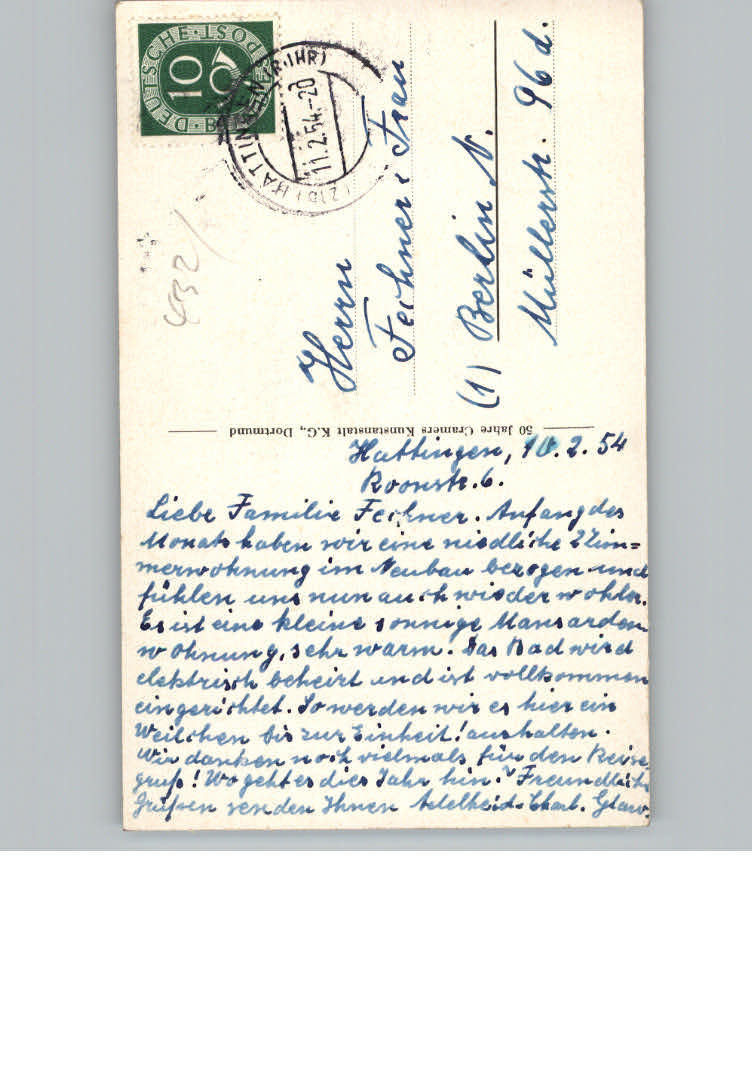 DEUTSCHE·BUNDESPOST
10
(21b) HATTINGEN (RUHR)
11.2.54.-20
432/
Herrn
Fechner & Frau
(1) Berlin N.
Müllerstr. 96 d.
50 Jahre Cramers Kunstanstalt K.G., Dortmund
Hattingen, 10.2.54
Roonstr. 6.
Liebe Familie Fechner. Anfang des
Monats haben wir eine niedliche 2 Zim=
merwohnung im Neubau bezogen und
fühlen uns nun auch wieder wohler.
Es ist eine kleine sonnige Mansarden
wohnung, sehr warm. Das Bad wird
elektrisch beheizt und ist vollkommen
eingerichtet. So werden wir es hier ein
Weilchen bis zur Einheit! aushalten.
Wir danken noch vielmals für den Reise
gruß! Wo geht es dies Jahr hin? Freundliche
Grüßen senden Ihnen Adelheid Glaw.